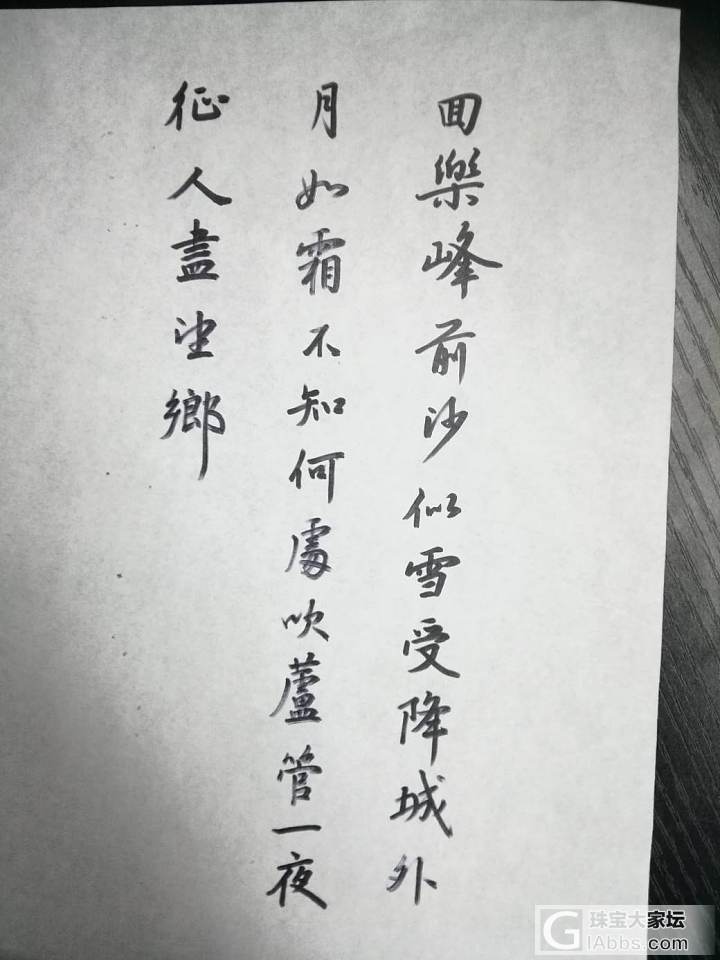 回樂峰前沙似雪受降城外
月如霜不知何處吹蘆管一夜
征人盡望鄉
珠宝大家坛
lAbbs.com